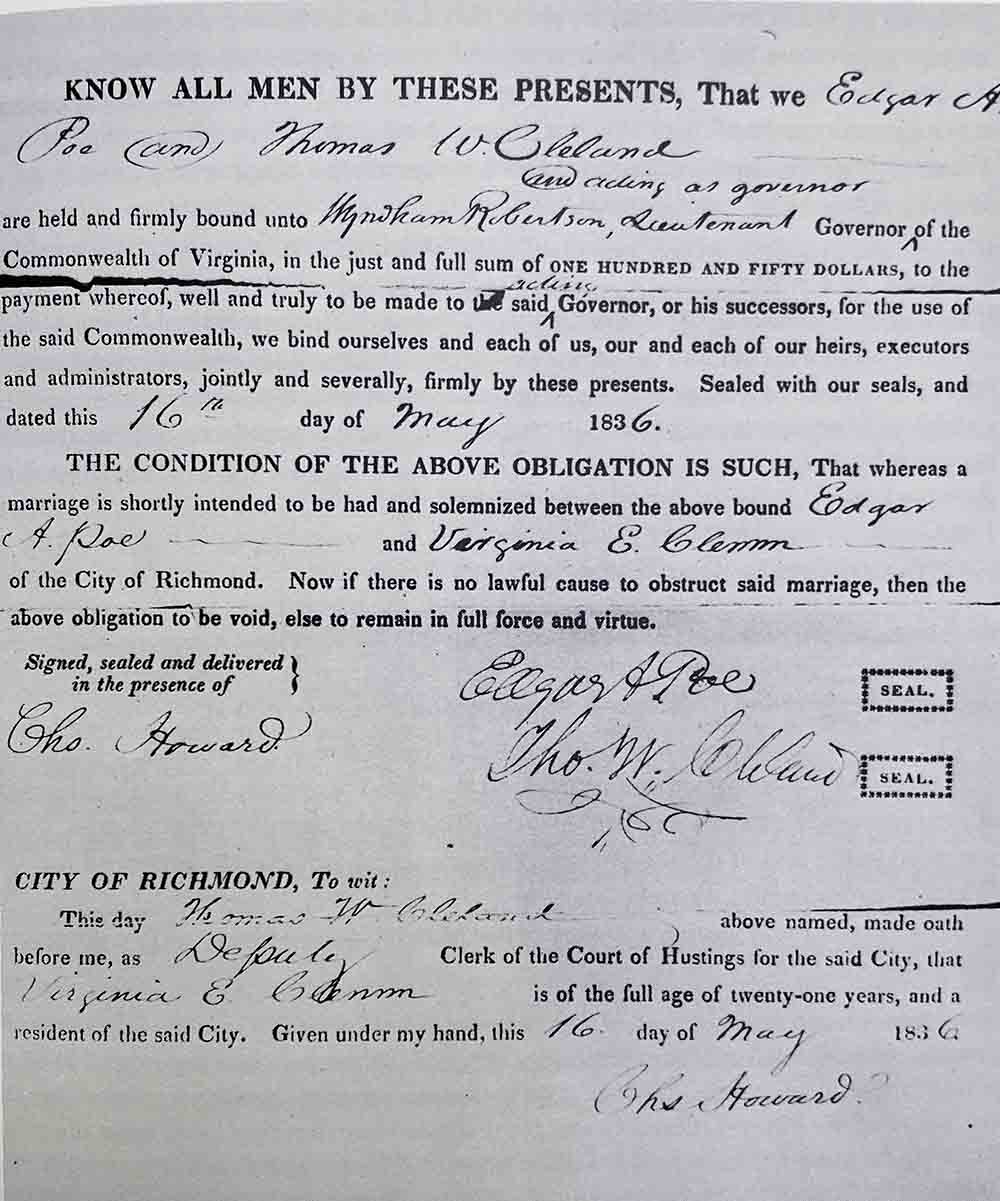 KNOW ALL MEN BY THESE PRESENTS, That we Edgar A.
Poe (and) Thomas W. Cleland
and acting as governor
are held and firmly bound unto Wyndham Robertson, Lieutenant Governor ^ of the
Commonwealth of Virginia, in the just and full sum of ONE HUNDRED AND FIFTY DOLLARS, to the
acting
payment whereof, well and truly to be made to the said ^ Governor, or his successors, for the use of
the said Commonwealth, we bind ourselves and each of us, our and each of our heirs, executors
and administrators, jointly and severally, firmly by these presents. Sealed with our seals, and
dated this 16th day of May 1836.
THE CONDITION OF THE ABOVE OBLIGATION IS SUCH, That whereas a
marriage is shortly intended to be had and solemnized between the above bound Edgar
A. Poe and Virginia E. Clemm
of the City of Richmond. Now if there is no lawful cause to obstruct said marriage, then the
above obligation to be void, else to remain in full force and virtue.
Signed, sealed and delivered }
in the presence of
Edgar A Poe SEAL.
Chs. Howard
Tho. W. Cleland SEAL.
CITY OF RICHMOND, To wit:
This day Thomas W Cleland above named, made oath
before me, as Deputy Clerk of the Court of Hustings for the said City, that
Virginia E. Clemm is of the full age of twenty-one years, and a
resident of the said City. Given under my hand, this 16. day of May 1836
Chs Howard